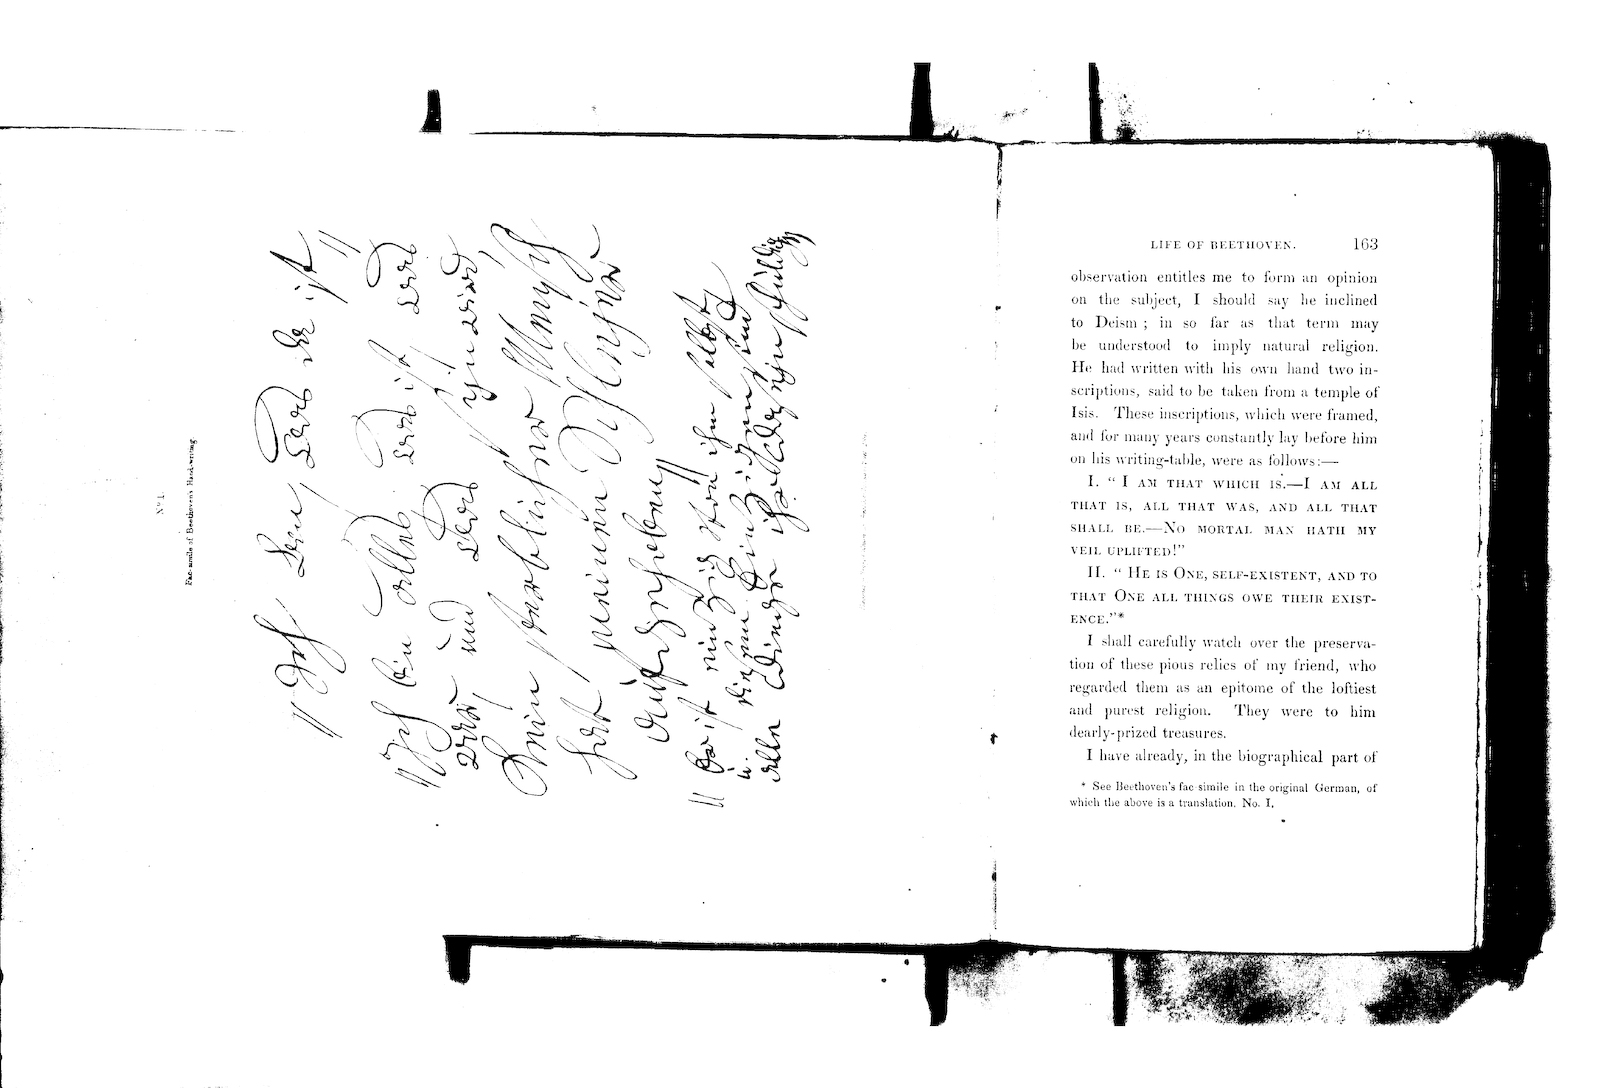 No 1.
Fac-simile of Beethoven's Hand-writing
// Ich bin, was da ist //
// Ich bin alles, was ist, was
war, und was seyn wird,
Kein sterblicher Mensch
hat meinen Schleyer
aufgehoben //
// Er ist einzig von ihm selbst
u. diesem Einzigen sind
alle Dinge ihr Daseyn schuldig
LIFE OF BEETHOVEN. 163
observation entitles me to form an opinion
on the subject, I should say he inclined
to Deism ; in so far as that term may
be understood to imply natural religion.
He had written with his own hand two in-
scriptions, said to be taken from a temple of
Isis. These inscriptions, which were framed,
and for many years constantly lay before him
on his writing-table, were as follows:—
I. “ I AM THAT WHICH IS.—I AM ALL
THAT IS, ALL THAT WAS, AND ALL THAT
SHALL BE.—NO MORTAL MAN HATH MY
VEIL UPLIFTED!”
II. “ HE IS ONE, SELF-EXISTENT, AND TO
THAT ONE ALL THINGS OWE THEIR EXIST-
ENCE.”*
I shall carefully watch over the preserva-
tion of these pious relics of my friend, who
regarded them as an epitome of the loftiest
and purest religion. They were to him
dearly-prized treasures.
I have already, in the biographical part of
* See Beethoven's fac simile in the original German, of
which the above is a translation. No. I.